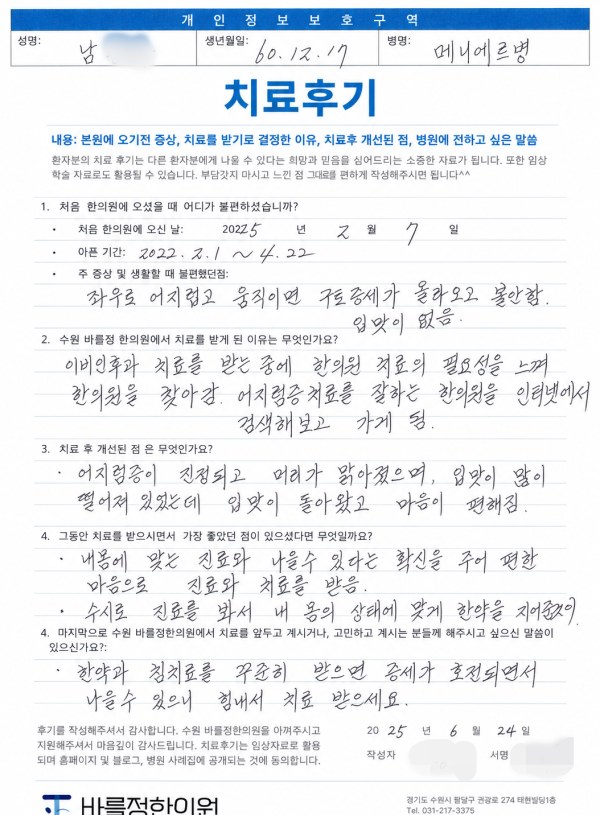 개인정보보호구역
성명: 남
생년월일: 60.12.17
병명: 메니에르병
치료후기
내용: 본원에 오기전 증상, 치료를 받기로 결정한 이유, 치료후 개선된 점, 병원에 전하고 싶은 말씀
환자분의 치료 후기는 다른 환자분에게 나을 수 있다는 희망과 믿음을 심어드리는 소중한 자료가 됩니다. 또한 임상
학술 자료로도 활용될 수 있습니다. 부담갖지 마시고 느낀 점 그대로를 편하게 작성해주시면 됩니다^^
1. 처음 한의원에 오셨을 때 어디가 불편하셨습니까?
· 처음 한의원에 오신 날: 2025 년 2 월 7 일
· 아픈 기간: 2022. 2. 1 ~ 4. 22
· 주 증상 및 생활할 때 불편했던점:
좌우로 어지럽고 움직이면 구토증세가 올라오고 불안함.
입맛이 없음.
2. 수원 바를정 한의원에서 치료를 받게 된 이유는 무엇인가요?
이비인후과 치료를 받는 중에 한의원 치료의 필요성을 느껴
한의원을 찾아감. 어지럼증치료를 잘하는 한의원을 인터넷에서
검색해보고 가게 됨.
3. 치료 후 개선된 점 은 무엇인가요?
· 어지럼증이 진정되고 머리가 맑아졌으며, 입맛이 많이
떨어져 있었는데 입맛이 돌아왔고 마음이 편해짐.
4. 그동안 치료를 받으시면서 가장 좋았던 점이 있으셨다면 무엇일까요?
· 내몸에 맞는 진료와 나을수 있다는 확신을 주어 편한
마음으로 진료와 치료를 받음.
· 수시로 진료를 봐서 내 몸의 상태에 맞게 한약을 지어주심.
4. 마지막으로 수원 바를정한의원에서 치료를 앞두고 계시거나, 고민하고 계시는 분들께 해주시고 싶으신 말씀이
있으신가요?:
· 한약과 침치료를 꾸준히 받으면 증세가 호전되면서
나을수 있으니 힘내서 치료 받으세요.
후기를 작성해주셔서 감사합니다. 수원 바를정한의원을 아껴주시고
지원해주셔서 마음깊이 감사드립니다. 치료후기는 임상자료로 활용
되며 홈페이지 및 블로그, 병원 사례집에 공개되는 것에 동의합니다.
2025 년 6 월 24 일
작성자 서명
바를정한의원
경기도 수원시 팔달구 권광로 274 태현빌딩1층
Tel. 031-217-3375